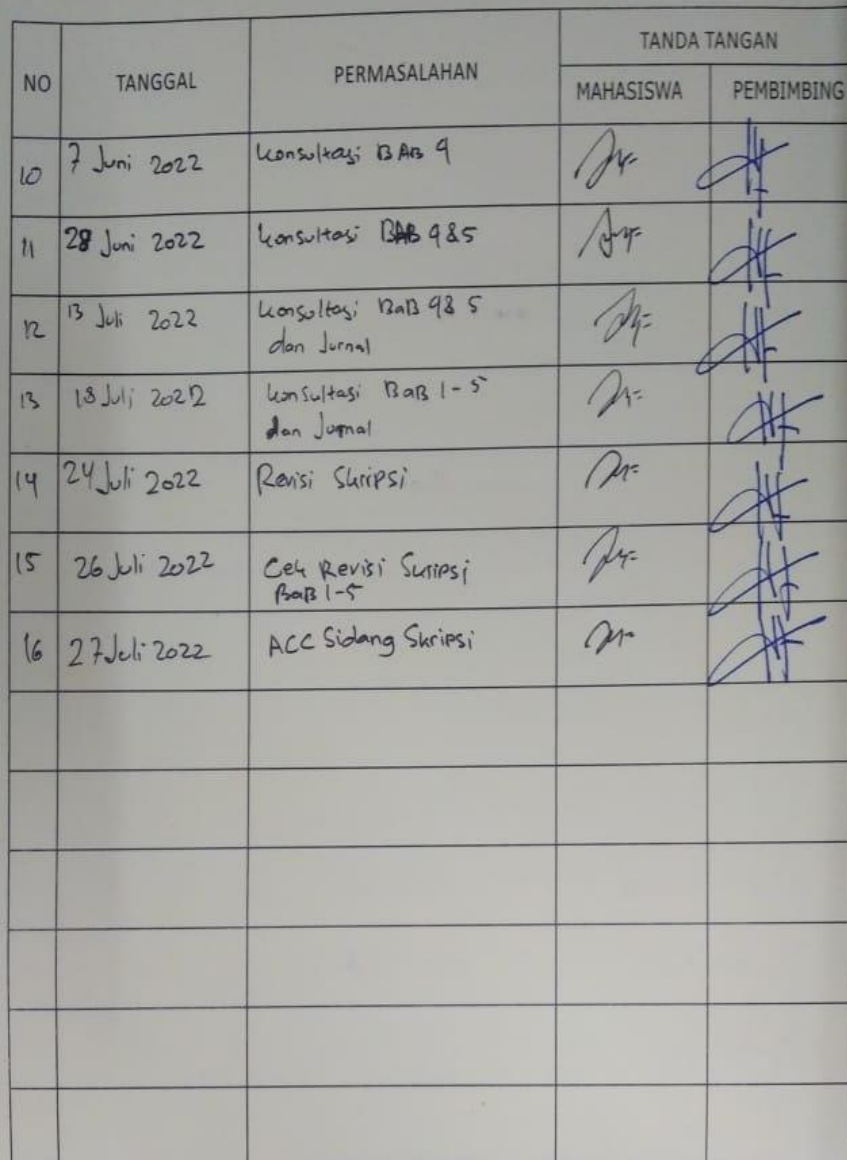 NO TANGGAL PERMASALAHAN TANDA TANGAN
MAHASISWA PEMBIMBING
10 7 Juni 2022 Konsultasi BAB 4
11 28 Juni 2022 Konsultasi BAB 4&5
12 13 Juli 2022 Konsultasi BaB 4& 5
dan Jurnal
13 18 Juli 2022 Konsultasi BaB 1-5
dan Jurnal
14 24 Juli 2022 Revisi Skripsi
15 26 Juli 2022 Cek Revisi Skripsi
BaB 1-5
16 27 Juli 2022 ACC Sidang Skripsi